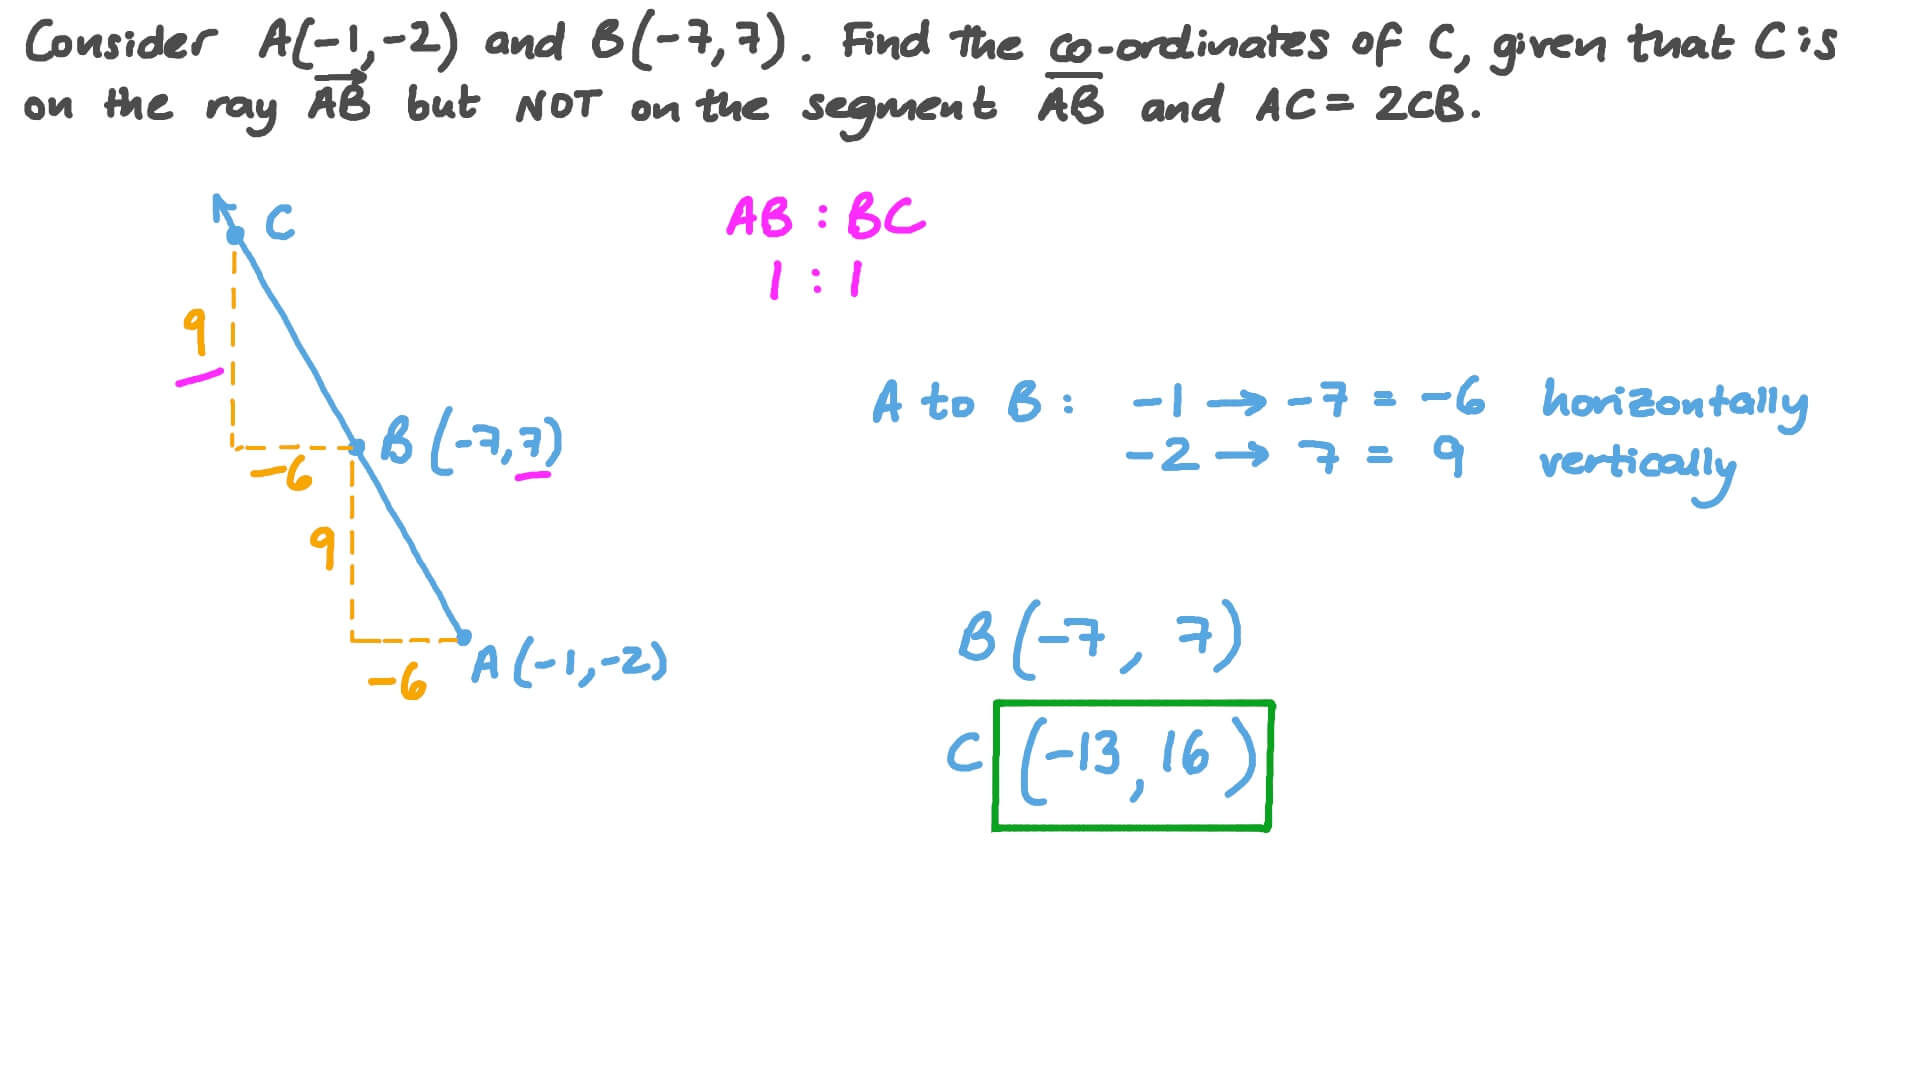 Consider A(-1,-2) and B(-7,7). Find the co-ordinates of C, given that C is
on the ray AB but NOT on the segment AB and AC = 2CB.
C
AB : BC
1 : 1
9
A to B: -1 → -7 = -6 horizontally
B (-7,7)
-2 → 7 = 9 vertically
-6
9
B (-7, 7)
A (-1,-2)
-6
C (-13, 16)